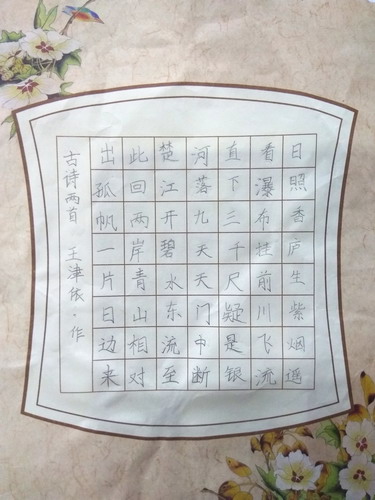 日照香庐生紫烟遥
看瀑布挂前川飞流
直下三千尺疑是银
河落九天天门中断
楚江开碧水东流至
此回两岸青山相对
出孤帆一片日边来
古诗两首 王津依·作